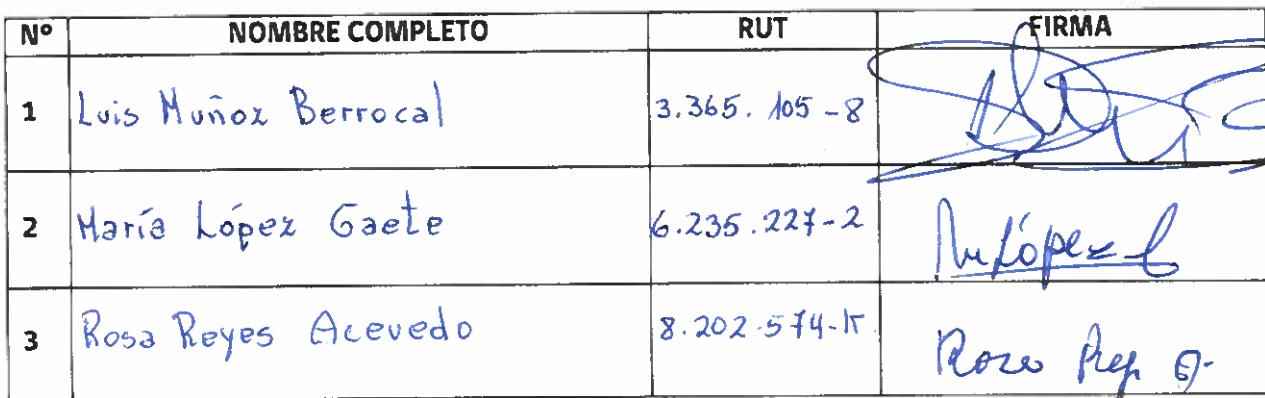 Nº NOMBRE COMPLETO RUT FIRMA
1 Luis Muñoz Berrocal 3.365.105-8
2 María López Gaete 6.235.227-2 M López G
3 Rosa Reyes Acevedo 8.202.574-K Rosa